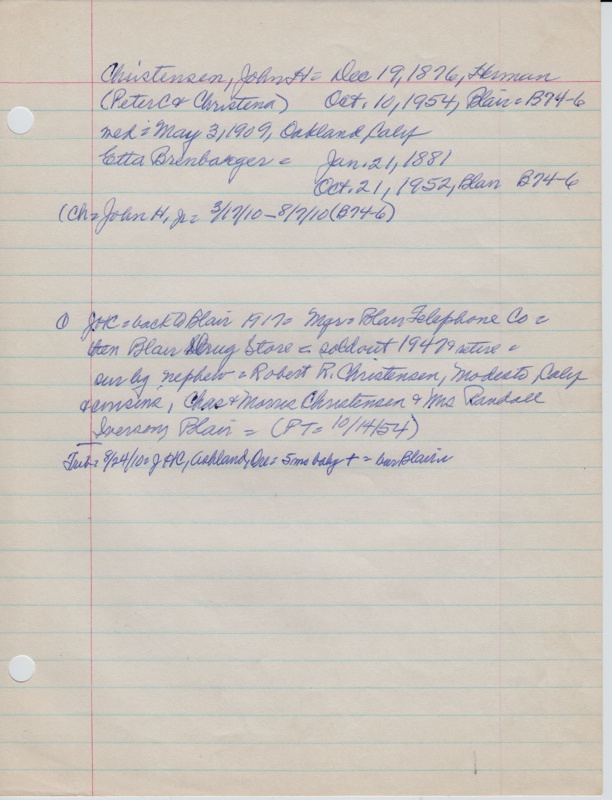 Christensen, John H = Dec 19, 1876, Herman
(Peter C & Christena) Oct. 10, 1954, Blair = B74-6
med = May 3, 1909, Oakland, Calif
Etta Brenbarger = Jan. 21, 1881
Oct. 21, 1952, Blair B74-6
(Ch = John H, Jr = 3/17/10 - 8/7/10 (B74-6)
① JHC = back to Blair 1917 = Mgr = Blair Telephone Co =
then Blair Drug Store = sold out 1947 & retire =
sur by nephew = Robert R. Christensen, Modesto, Calif
& cousins, Chas & Morris Christensen & Mrs Randall
Iverson, Blair = (PT = 10/14/54)
Trib = 8/24/10 = JHC, Ashland, Ore = 5 mo baby + = bur Blair